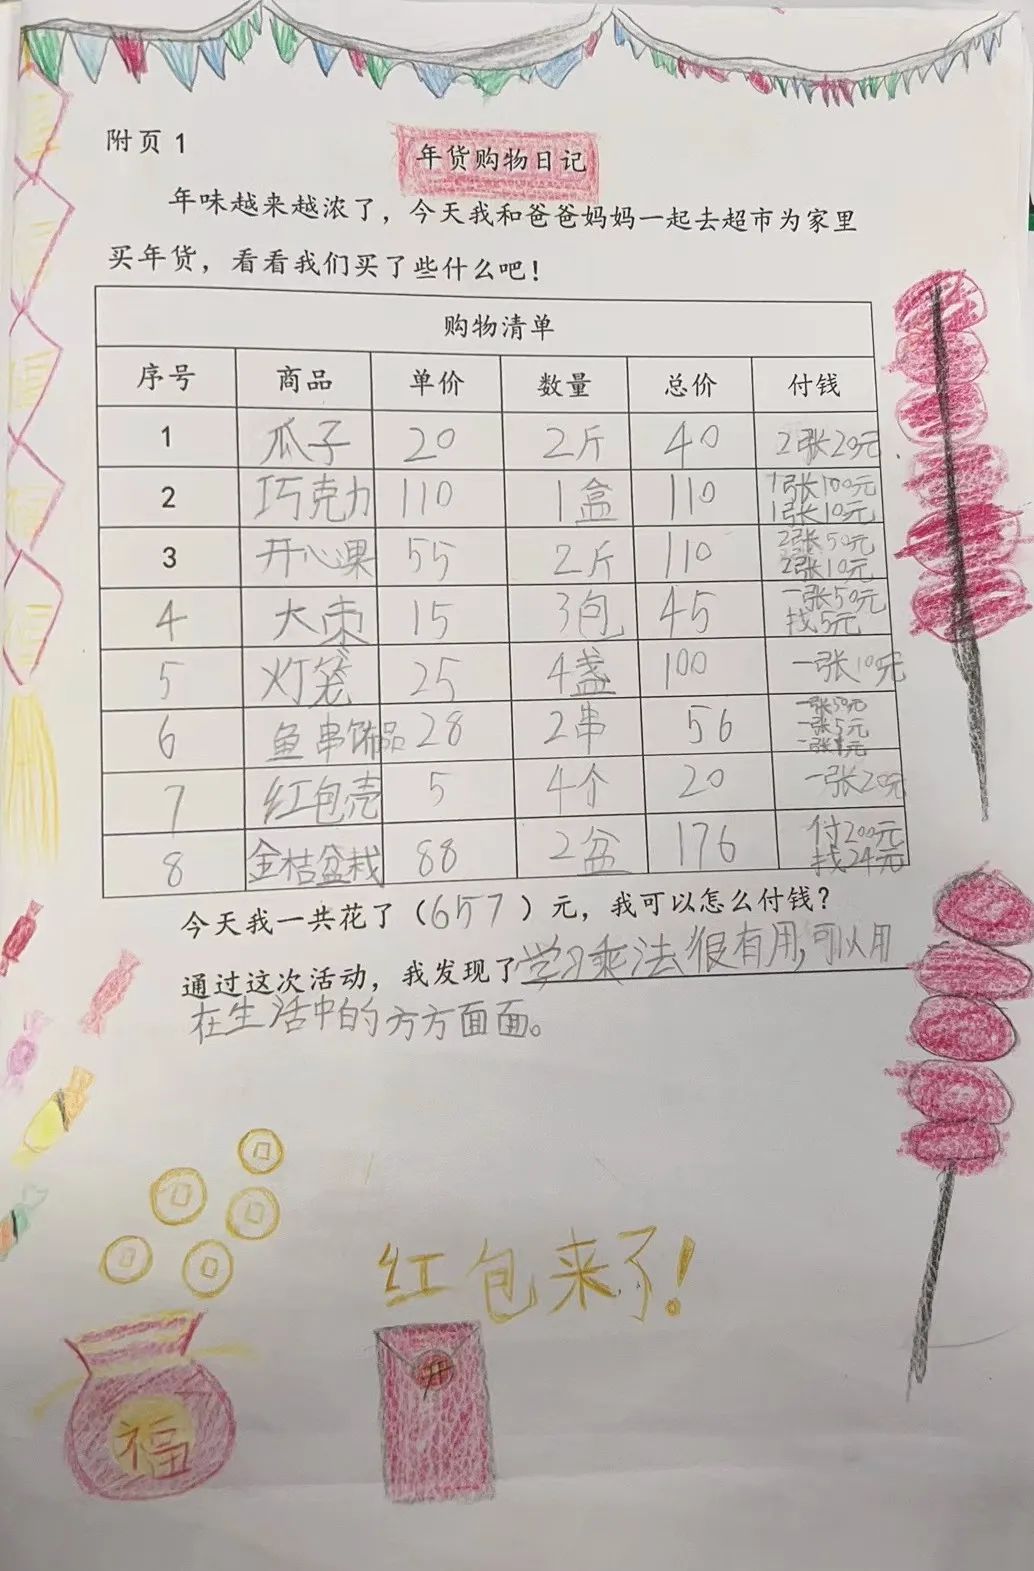 附页 1
年货购物日记
年味越来越浓了，今天我和爸爸妈妈一起去超市为家里
买年货，看看我们买了些什么吧！
购物清单
序号 商品 单价 数量 总价 付钱
1 瓜子 20 2斤 40 2张20元
2 巧克力 110 1盒 110 1张100元
1张10元
3 开心果 55 2斤 110 2张50元
2张10元
4 大枣 15 3包 45 一张50元
找5元
5 灯笼 25 4盏 100 一张100元
6 鱼串饰品 28 2串 56 一张50元
一张5元
一张1元
7 红包壳 5 4个 20 一张20元
8 金桔盆栽 88 2盆 176 付200元
找24元
今天我一共花了（657）元，我可以怎么付钱？
通过这次活动，我发现了学习乘法很有用，可以用
在生活中的方方面面。
红包来了！
开
福